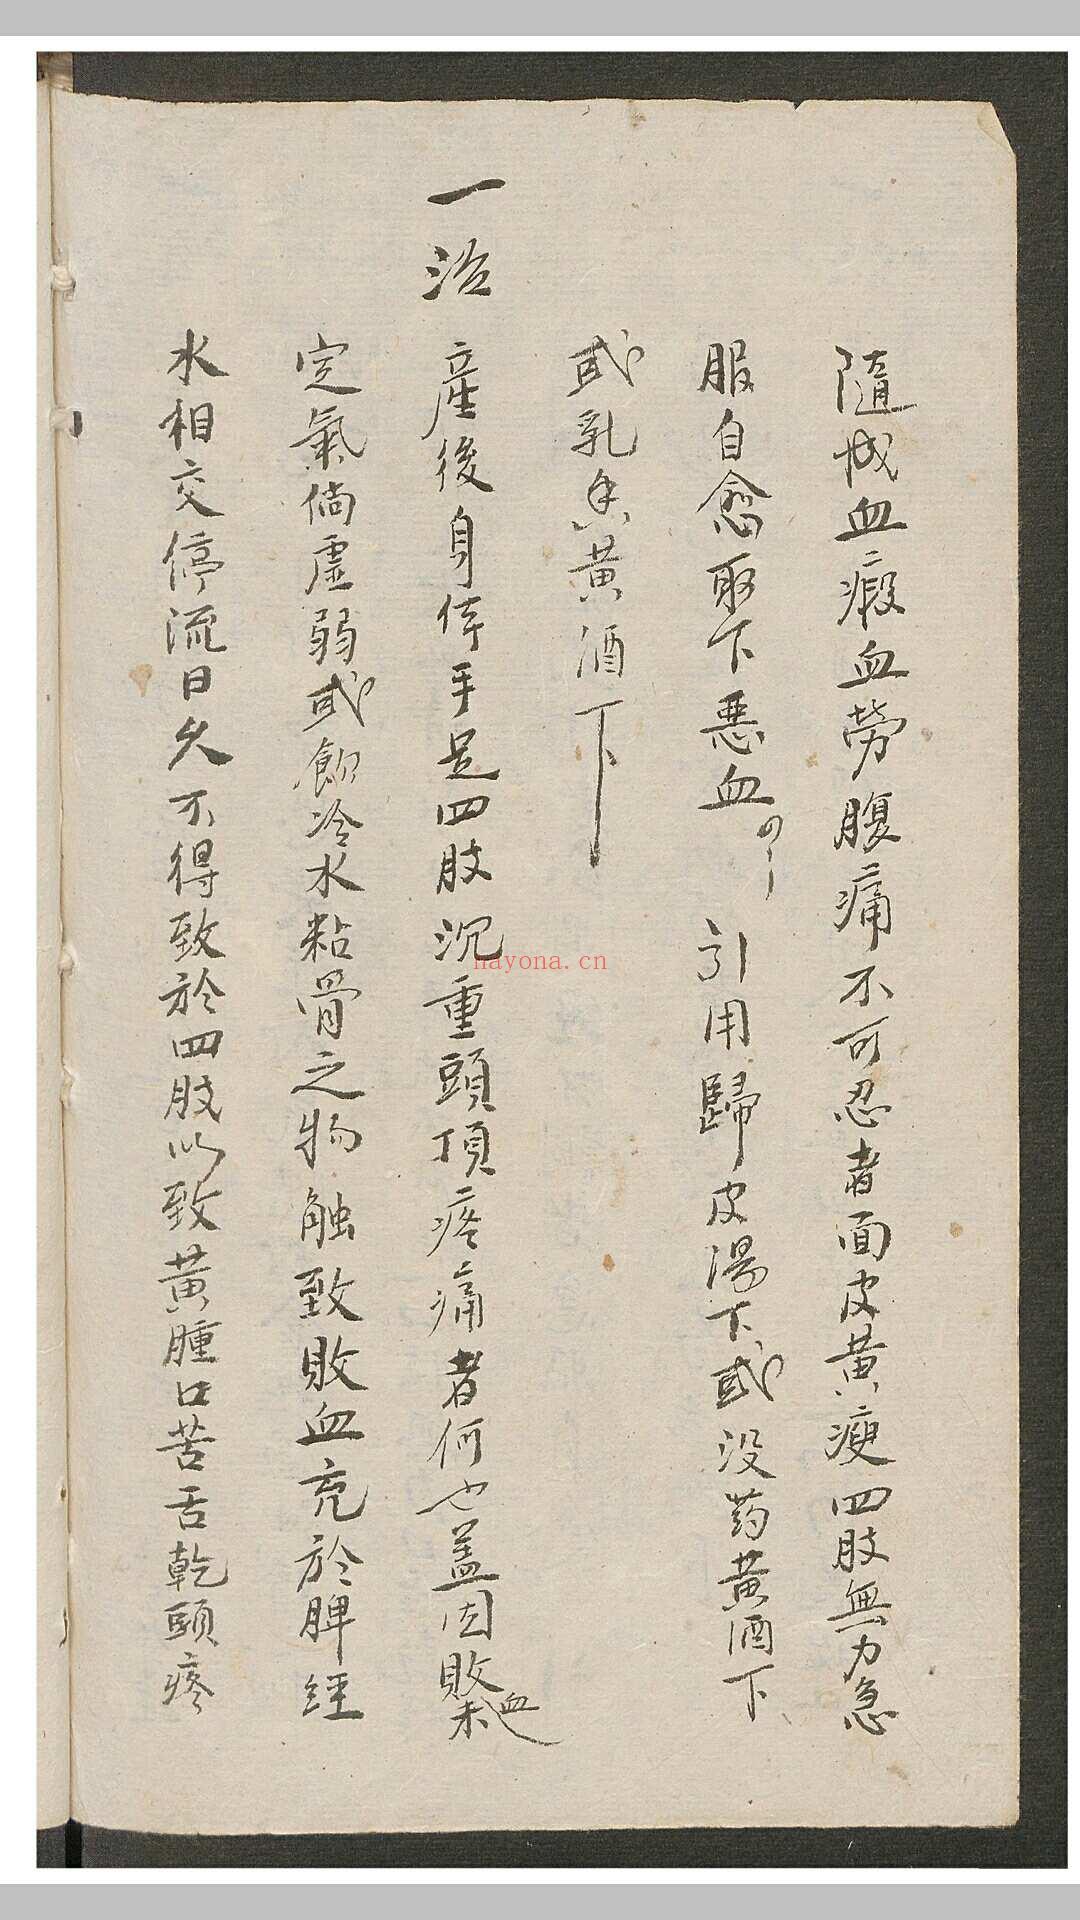 隨成血瘕血勞腹痛不可忍者面皮黃瘦四肢無力急
服自愈取下惡血 引用歸皮湯下或没药黃酒下
或乳香黃酒下
一治產後身倖手足四肢沉重頭頂疼痛者何也蓋因敗血未
定氣倘虛弱或飲冷水粘骨之物触致敗血充於脾經
水相交停流日久不得致於四肢以致黃腫口苦舌乾頭疼
nayona.cn